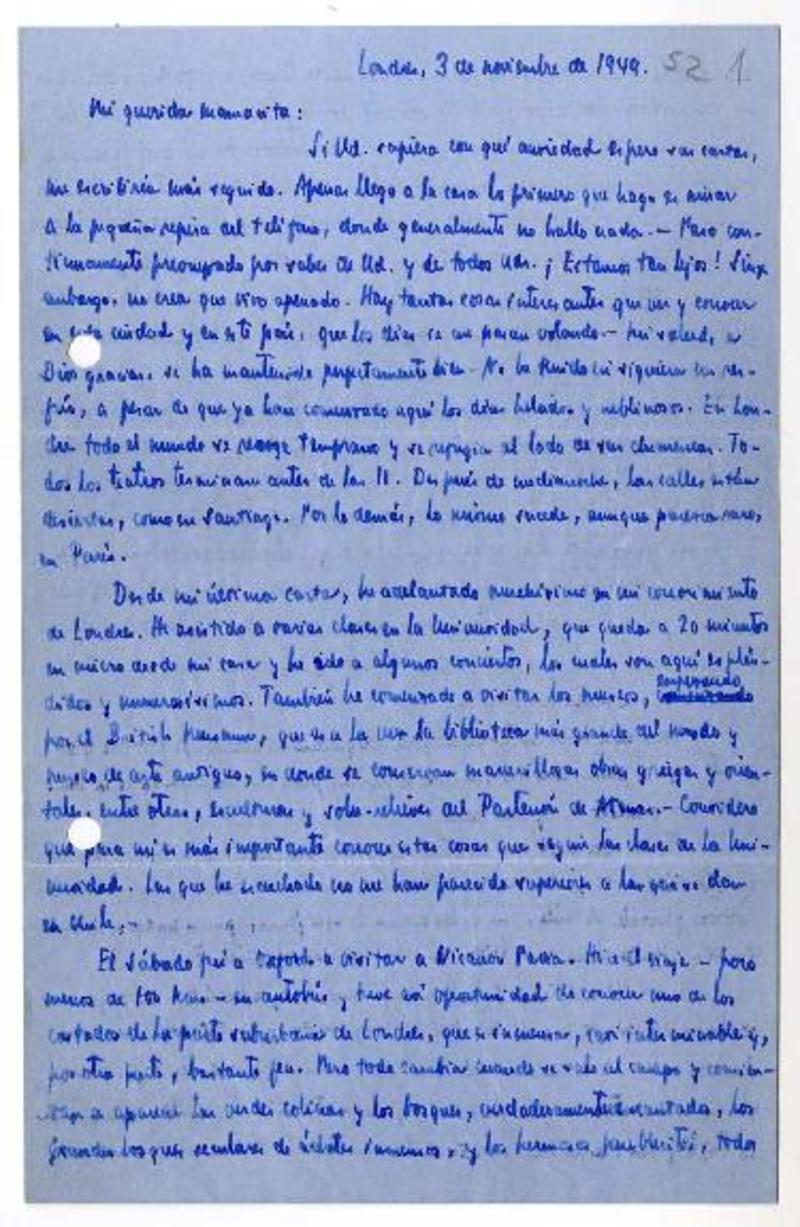 Londres, 3 de noviembre de 1949. 52 1
Mi querida mamacita:
Si Ud. supiera con qué ansiedad espero sus cartas,
me escribiría más seguido. Apenas llego a la casa lo primero que hago es mirar
a la pequeña repisa del teléfono, donde generalmente no hallo nada.- Paso con-
tinuamente preocupado por saber de Ud. y de todos Uds. ¡Estamos tan lejos! Sin
embargo, no crea que vivo apenado. Hay tantas cosas interesantes que ver y conocer
en esta ciudad y en este país, que los días se me pasan volando.- Mi salud, a
Dios gracias, se ha mantenido perfectamente bien.- No he tenido ni siquiera un res-
frío, a pesar de que ya han comenzado aquí los días helados y neblinosos. En Lon-
dres todo el mundo se recoge temprano y se refugia al lado de sus chimeneas. To-
dos los teatros terminan antes de las 11. Después de medianoche, las calles están
desiertas, como en Santiago. Por lo demás, lo mismo sucede, aunque parezca raro,
en París.
Desde mi última carta, he adelantado muchísimo en mi conocimiento
de Londres. He asistido a varias clases en la Universidad, que queda a 20 minutos
en micro desde mi casa y he ido a algunos conciertos, los cuales son aquí esplén-
didos y numerosísimos. También he comenzado a visitar los museos, empezando
por el British Museum, que es a la vez la biblioteca más grande del mundo y
museo de arte antiguo, en donde se conservan maravillosas obras griegas y orien-
tales, entre otras, esculturas y sobre-relieves del Partenón de Atenas.- Considero
que para mí es más importante conocer estas cosas que seguir las clases de la Uni-
versidad. Las que he escuchado no me han parecido superiores a las que se dan
en Chile.-
El sábado fui a Oxford a visitar a Nicanor Parra. Hice el viaje - poco
menos de 100 Kms - en autobús y tuve así oportunidad de conocer uno de los
costados de la parte suburbana de Londres, que es inmensa, casi interminable y,
por otra parte, bastante fea. Pero todo cambia cuando se sale al campo y comien-
zan a aparecer las verdes colinas y los bosques, verdaderamente encantados, los
grandes bosques seculares de árboles inmensos, y los hermosos pueblecitos, todos